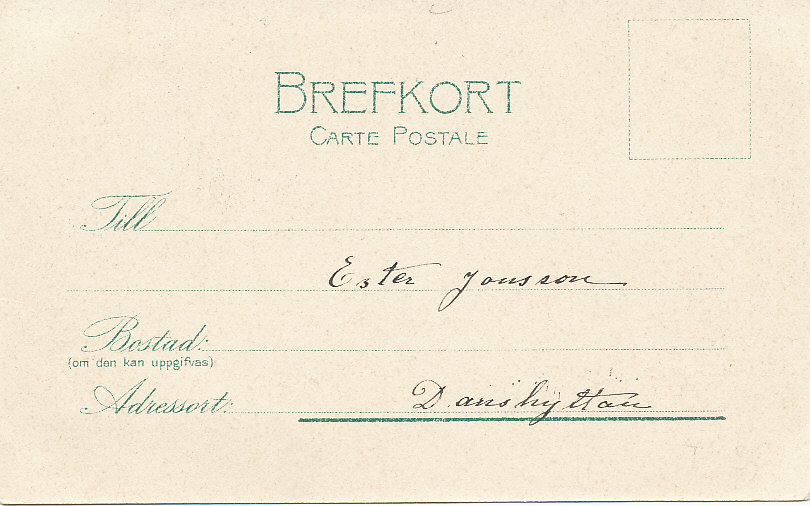 BREFKORT
CARTE POSTALE
Till
Ester Jonsson
Bostad:
(om den kan uppgifvas)
Adressort: Danshyttan